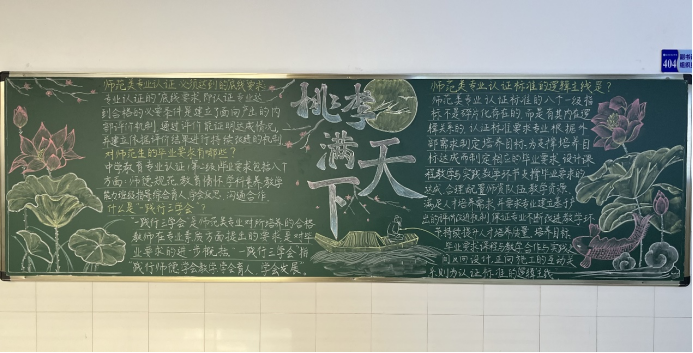 师范类专业认证必须达到的底线要求
专业认证的底线要求,即认证专业达
到合格的必要条件是建立了面向产出的内
部评价机制,通过评价能证明达成情况,
并建立依据评价结果进行持续改进的机制
对师范生的毕业要求有哪些?
中学教育专业认证,第二级,毕业要求包括八个
方面:师德规范,教育情怀,学科素养,教学
能力,班级指导,综合育人,学会反思,沟通合作
什么是“一践行三学会”?
“一践行三学会”是师范类专业对所培养的合格
教师在专业素质方面提出的要求是对毕
业要求的进一步概括,一践行三学会指
“践行师德,学会教学,学会育人,学会发展。
桃李
满天
下
师范类专业认证标准的逻辑主线是?
师范类专业认证标准的八个一级指
标,不是碎片化存在的,而是有其内在逻
辑关系的,认证标准要求专业根据外
部需求制定培养目标,为支撑培养目
标达成而制定相应的毕业要求,设计课
程教学与实践教学环节支撑毕业要求的
达成,合理配置师资队伍,教学资源,
满足人才培养需求,并要求专业建立基于产
出的评价改进机制,保证专业不断改进教学环
节持续提升人才培养质量,培养目标
毕业要求,课程与教学,合作与实践
间反向设计,正向施工的互动关
系则为认证标准的逻辑主线
404